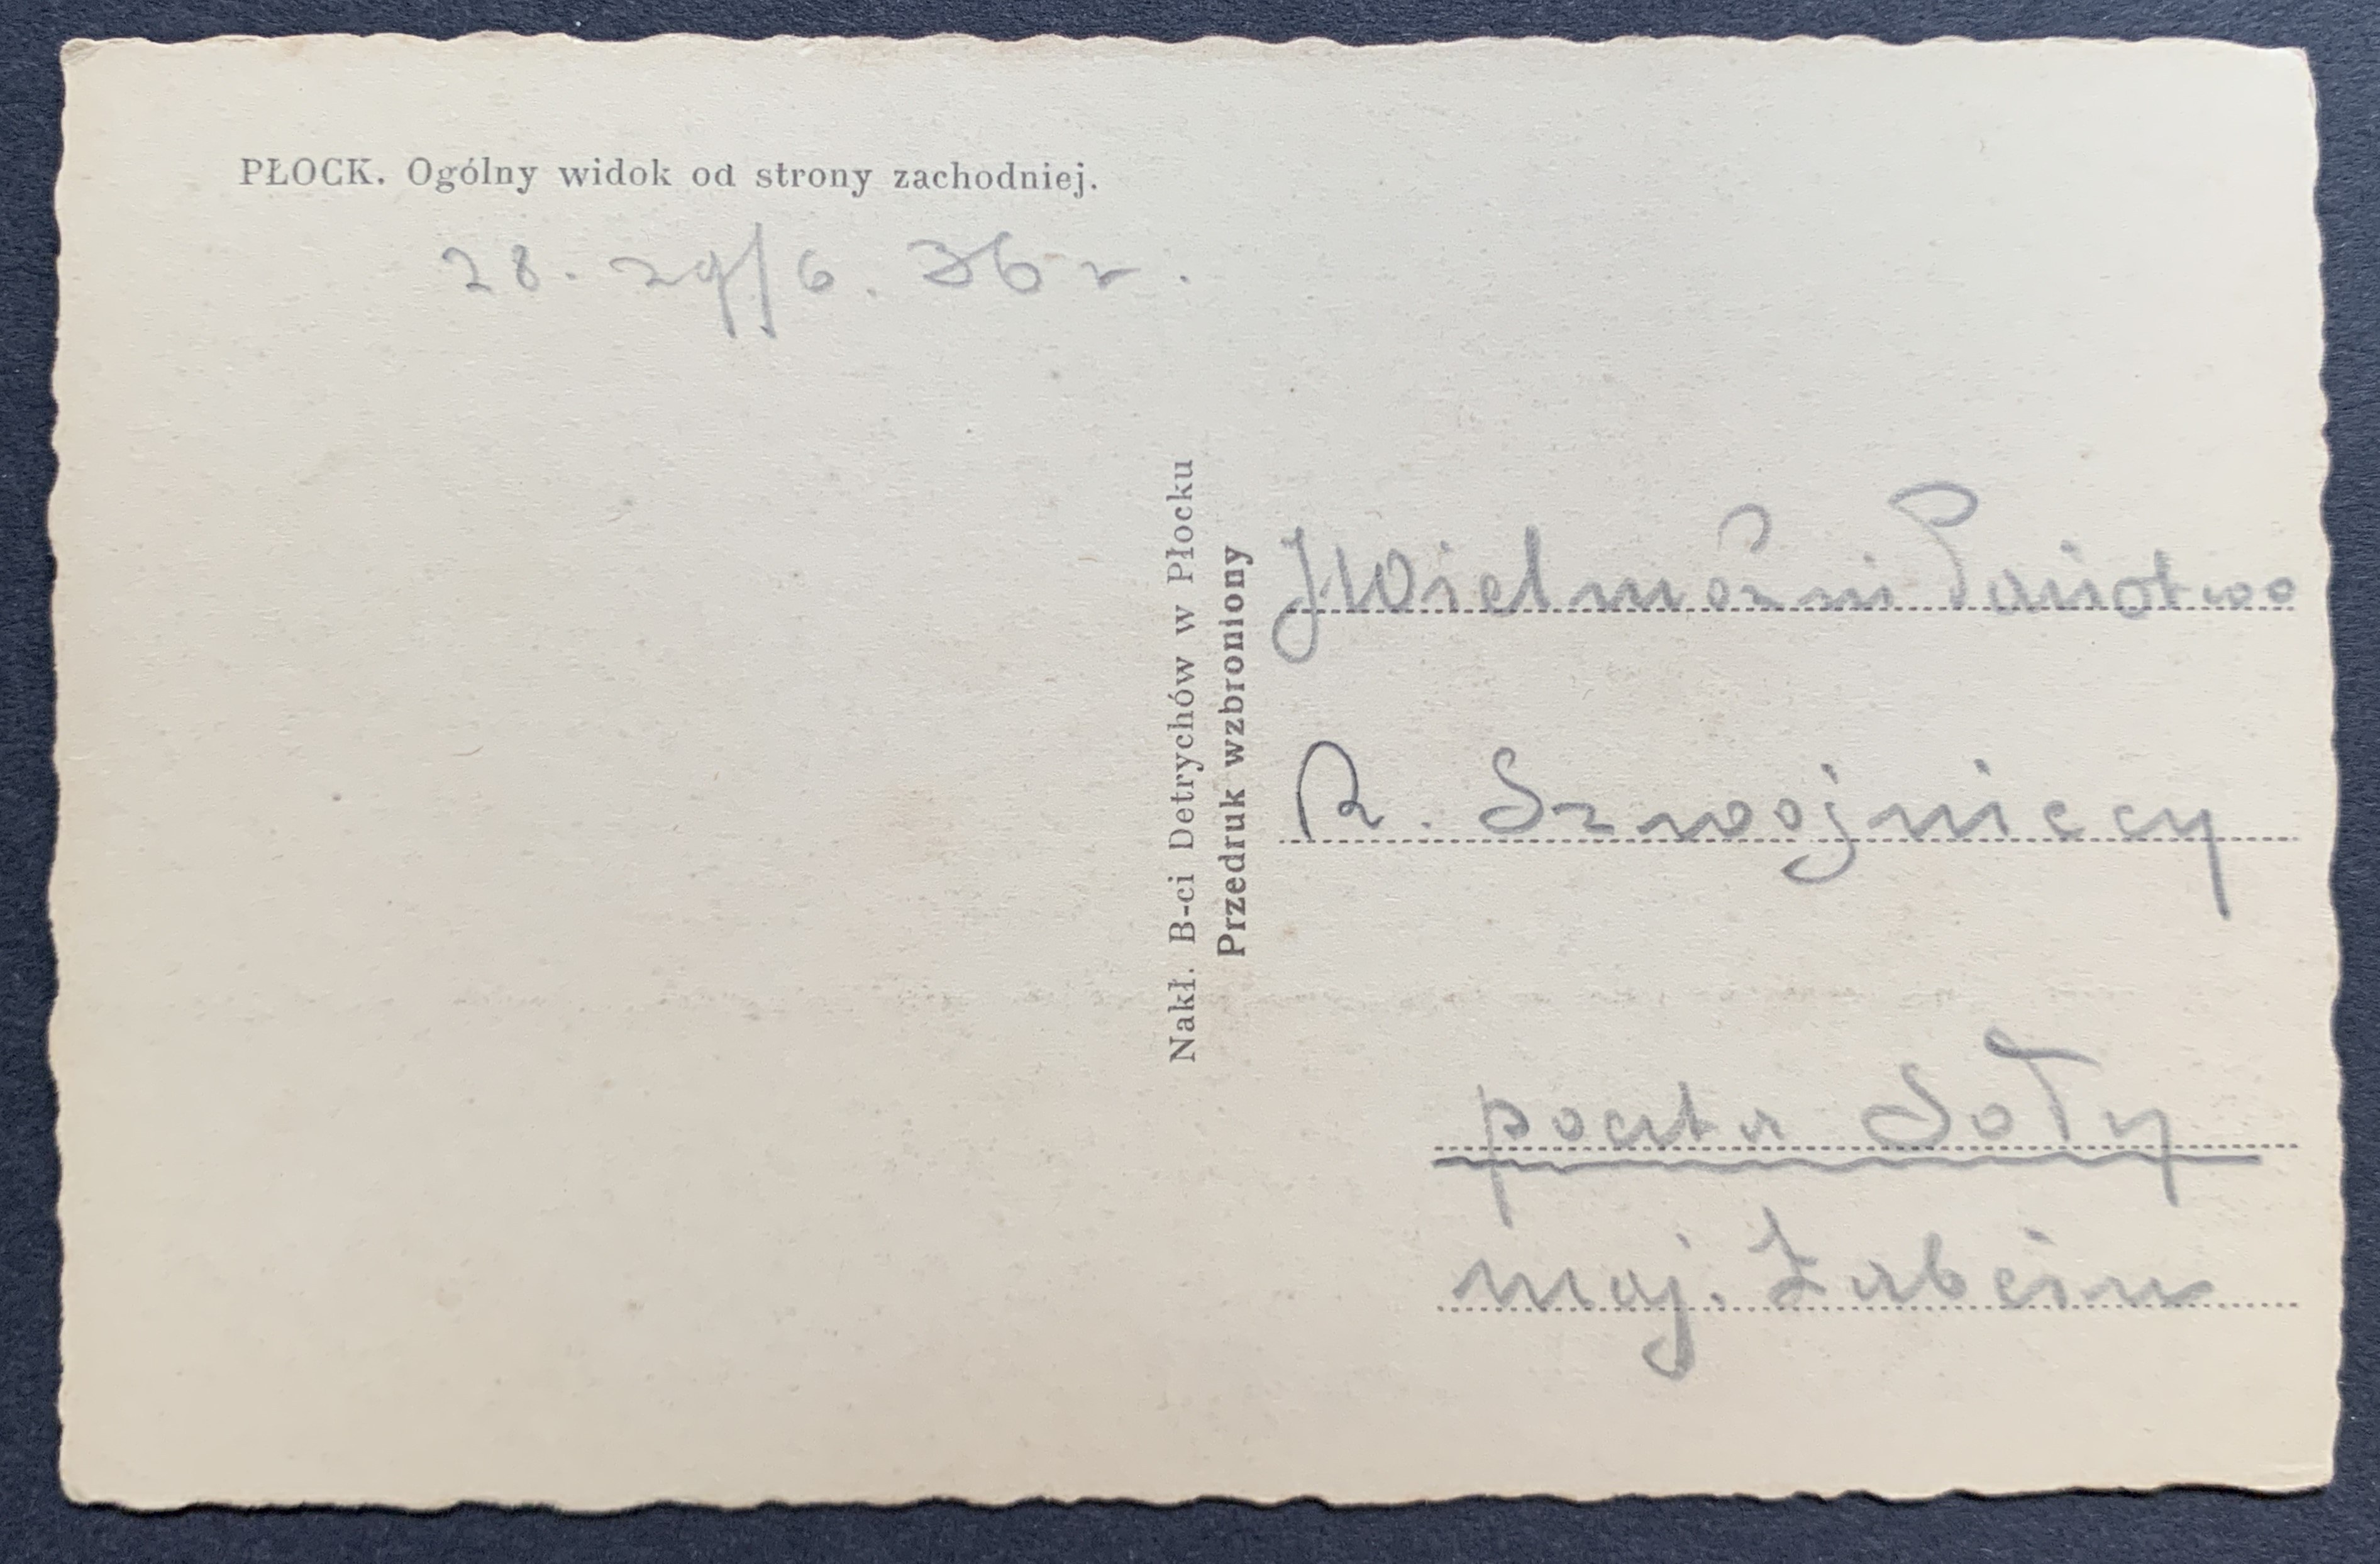 PŁOCK. Ogólny widok od strony zachodniej.
28. 29/6. 36 r.
Nakł. B-ci Detrychów w Płocku
Przedruk wzbroniony
JWielmożni Państwo
R. Szwojniccy
poczta Soły
maj.